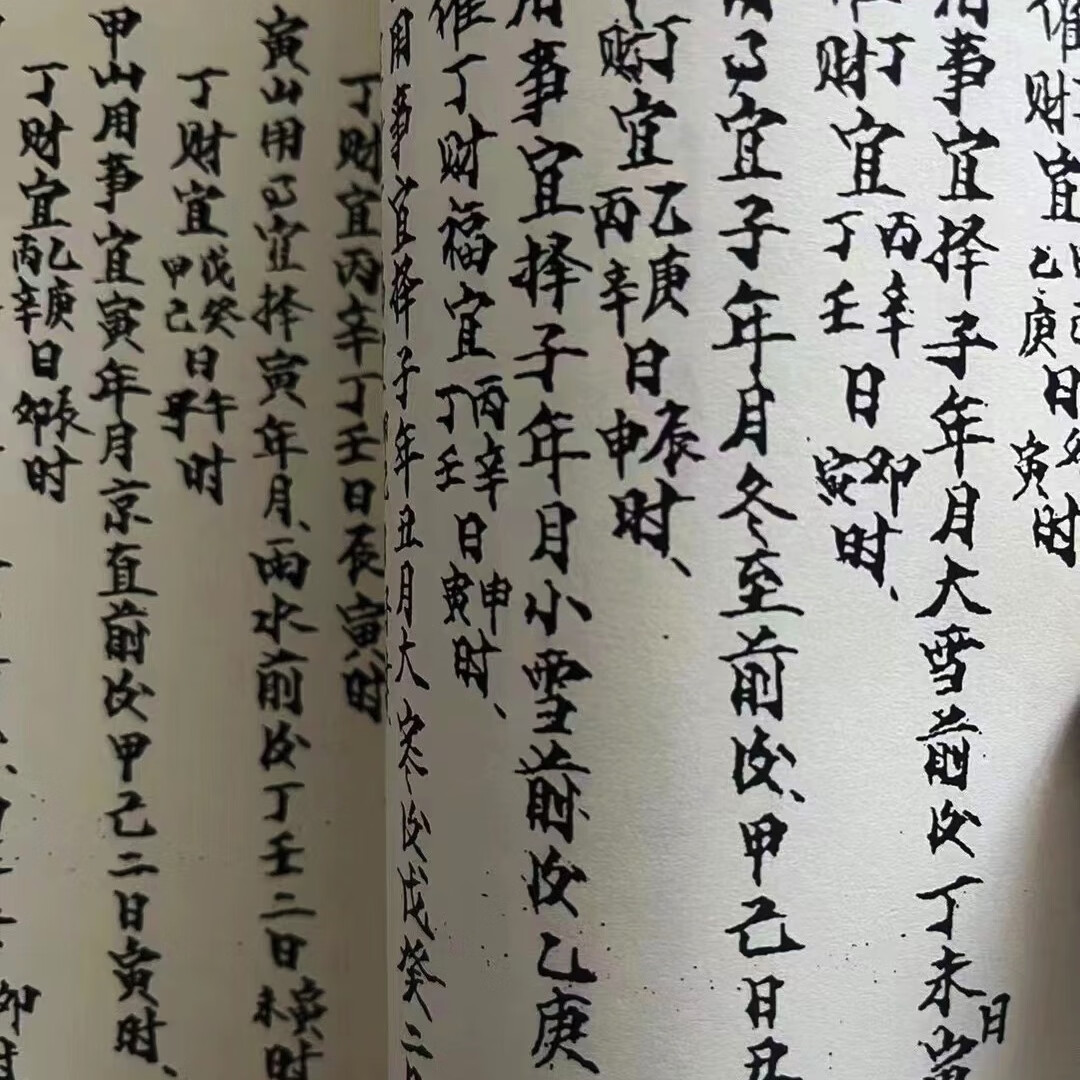 催
财宜甲己乙庚日卯寅时
用事宜择子年月大雪前后丁未日寅
丁财宜丙辛丁壬日卯寅时、
用事宜子年月冬至前后、甲己日丑
丁财宜乙庚丙辛日辰申时、
用事宜择子年月小雪前后乙庚
催丁财福宜丙辛丁壬日申寅时、
用事宜择子年丑月大寒后戊癸二日
丁财宜丙辛丁壬日辰寅时
寅山用事宜择寅年月、雨水前后丁壬二日寅未时
丁财宜戊癸甲己日午子时
甲山用事宜寅年月京直前后甲己二日寅时、
丁财宜乙庚丙辛日辰卯时
卯时